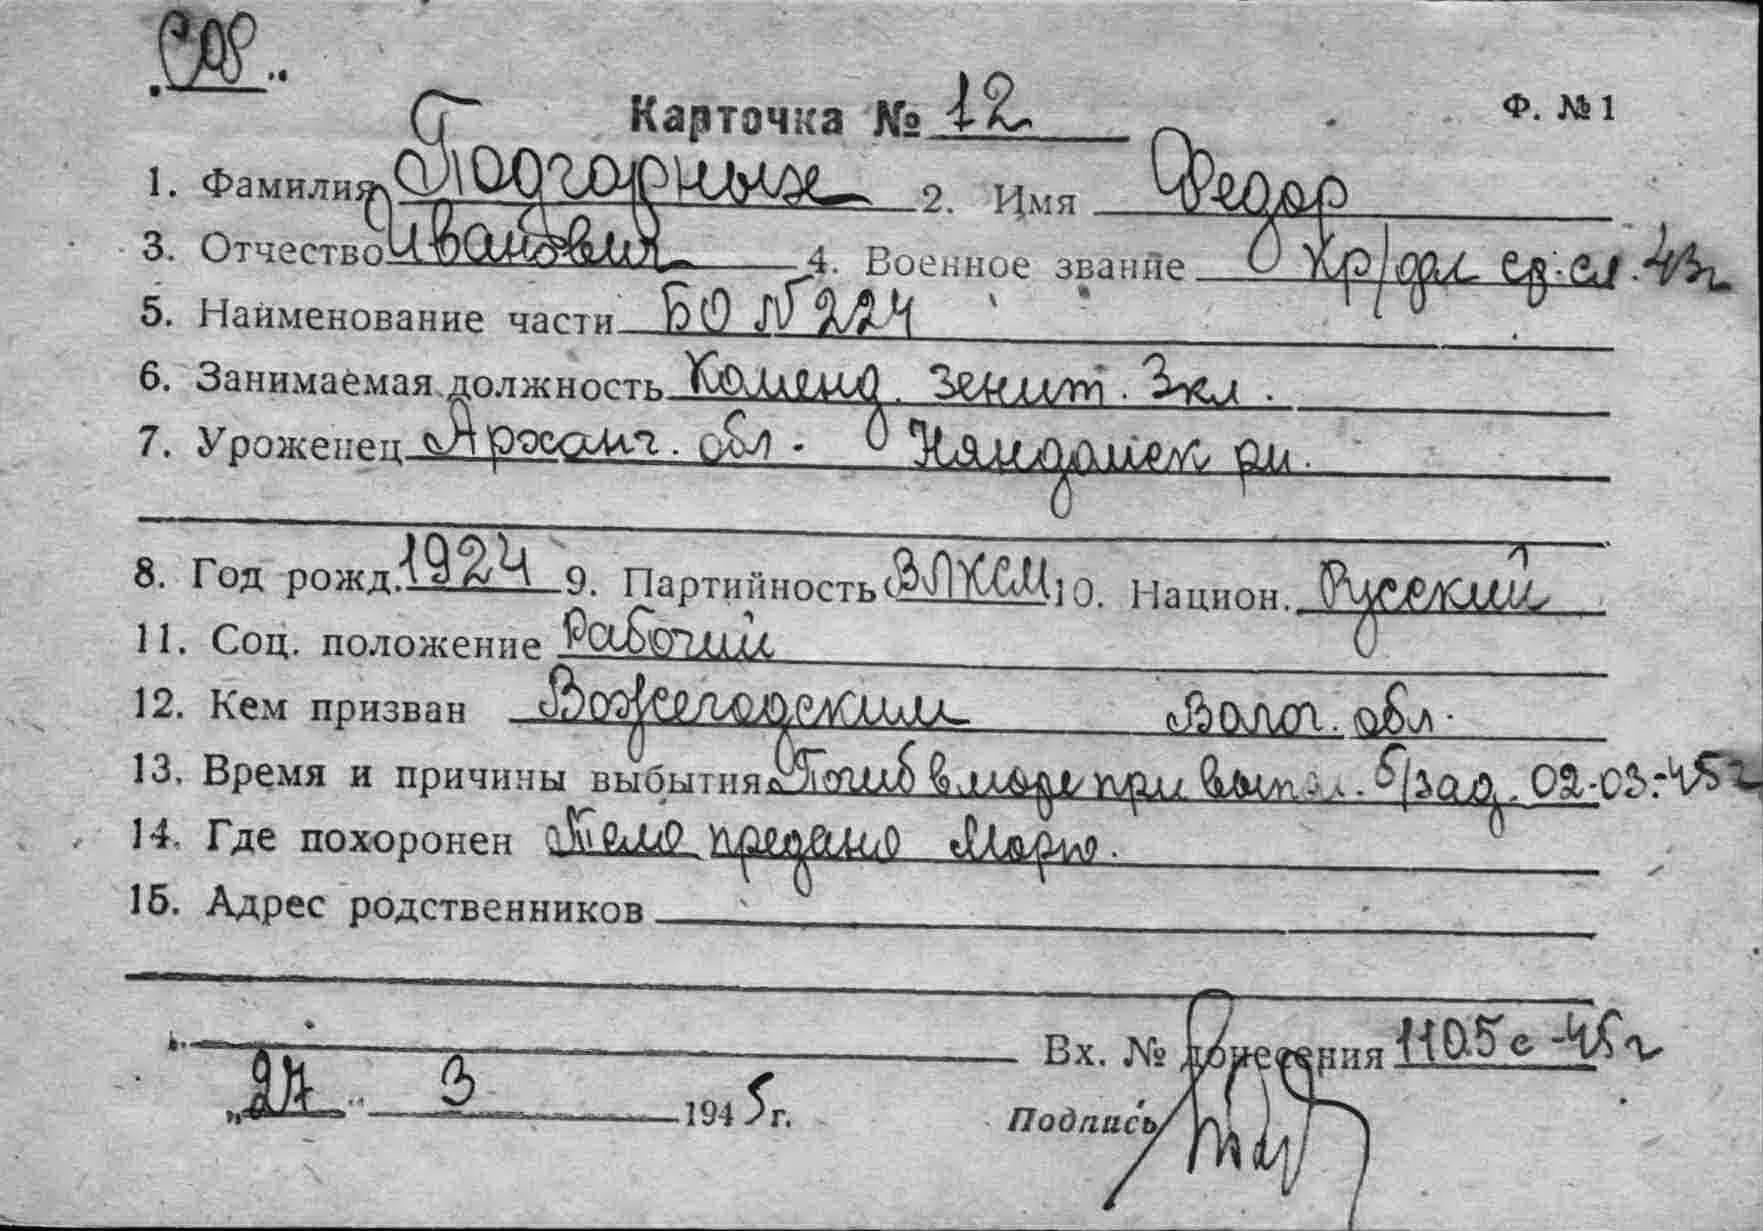 СОВ
Карточка № 12 Ф. № 1
1. Фамилия Подгорных 2. Имя Федор
3. Отчество Иванович 4. Военное звание кр/фл ср. сл. 43г
5. Наименование части БО N 224
6. Занимаемая должность Коменд. зенит. 3кл.
7. Уроженец Арханг. обл. Няндомск рн.
8. Год рожд. 1924 9. Партийность ВЛКСМ 10. Национ. Русский
11. Соц. положение Рабочий
12. Кем призван Вожегодским Волог. обл.
13. Время и причины выбытия Погиб в море при вып. б/зад. 02.03.-45г
14. Где похоронен Тело предано Морю.
15. Адрес родственников
Вх. № донесения 1105с -45г
„27" 3 1945 г.
Подпись